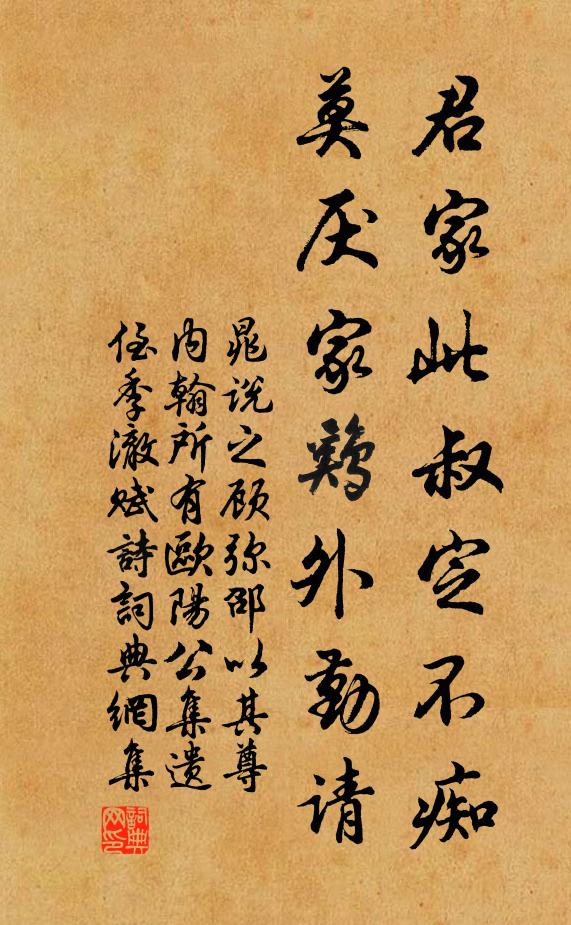 君家此叔定不痴
莫厌家鷄外勤请
晁说之顾弥邵以其尊
内翰所有歐陽公集遗
侄季澈赋詩詞典網集
詞典
网印